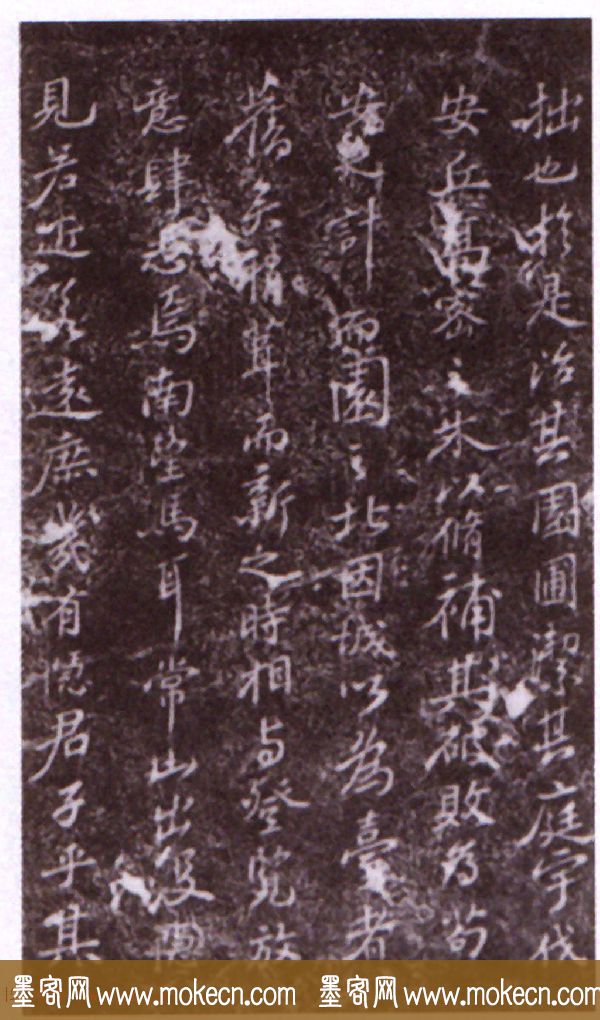 拙也於是治其園圃潔其庭宇伐
安丘高密之木以脩補其破敗為苟
之計而園之北因城以為臺者
舊矣稍葺而新之時相与登覽放
意肆志焉南望馬耳常山出沒隱
見若近若遠庶幾有隱君子乎其
墨客网 www.mokecn.com 墨客网 www.mokecn.com